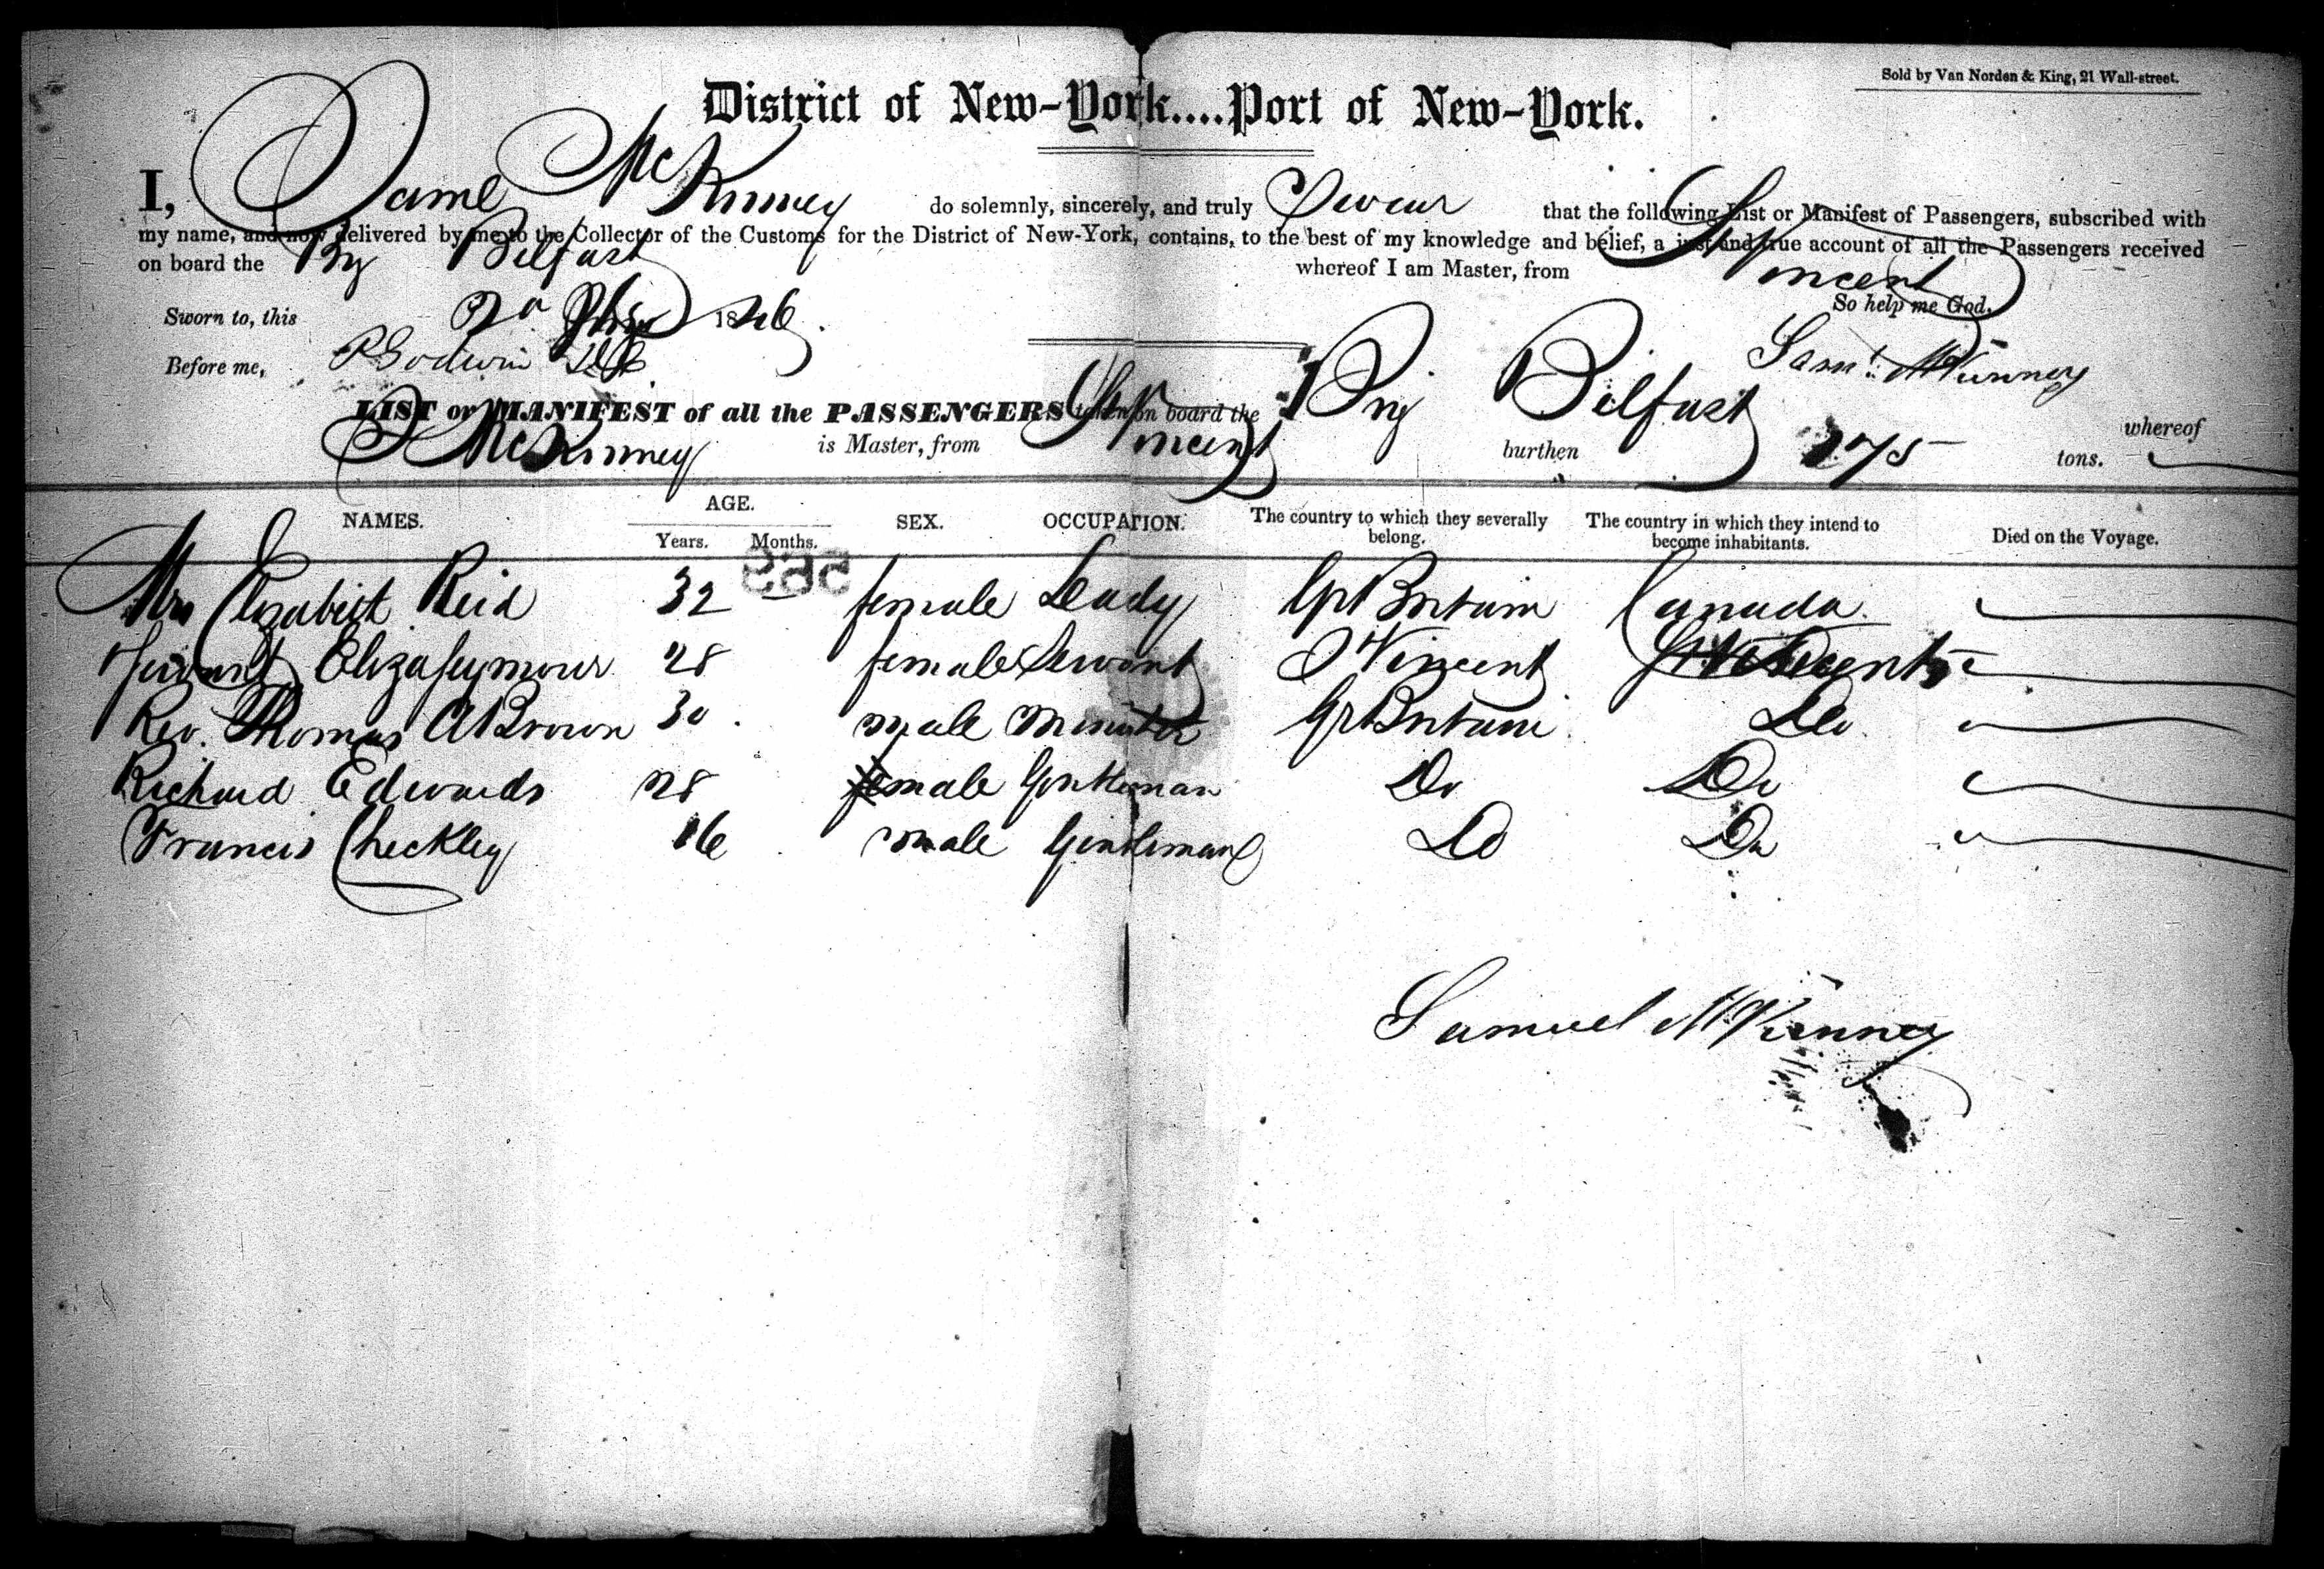 Sold by Van Norden & King, 21 Wall-street.
District of New-York....Port of New-York.
I, Saml McKinney do solemnly, sincerely, and truly Swear that the following List or Manifest of Passengers, subscribed with
my name, and now delivered by me to the Collector of the Customs for the District of New-York, contains, to the best of my knowledge and belief, a just and true account of all the Passengers received
on board the Brig Belfast whereof I am Master, from St Vincent
So help me God.
Sworn to, this 1846.
Saml. McKinney
Before me,
LIST or MANIFEST of all the PASSENGERS taken on board the Brig Belfast whereof
S McKinney is Master, from St Vincent burthen 175 tons.
NAMES. AGE. Years. Months. SEX. OCCUPATION. The country to which they severally belong. The country in which they intend to become inhabitants. Died on the Voyage.
Mrs Elizabeth Reid 32 female Lady Gt Britain Canada
Servant Eliza Seymour 28 female Servant St Vincent St Vincent
Rev. Thomas A Brown 30 male Minister Gt Britain Do
Richard Edwards 28 male Gentleman Do Do
Francis Checkley 16 male Gentleman Do Do
Samuel McKinney